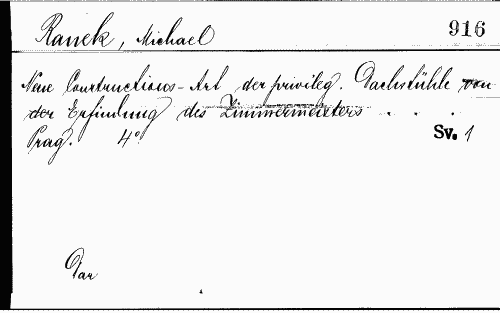 Ranek, Michael 916
Neue Constructions-Art der privileg. Dachstühle von
der Erfindung des Zimmermeisters . . .
Prag. 4° Sv. 1
Dar